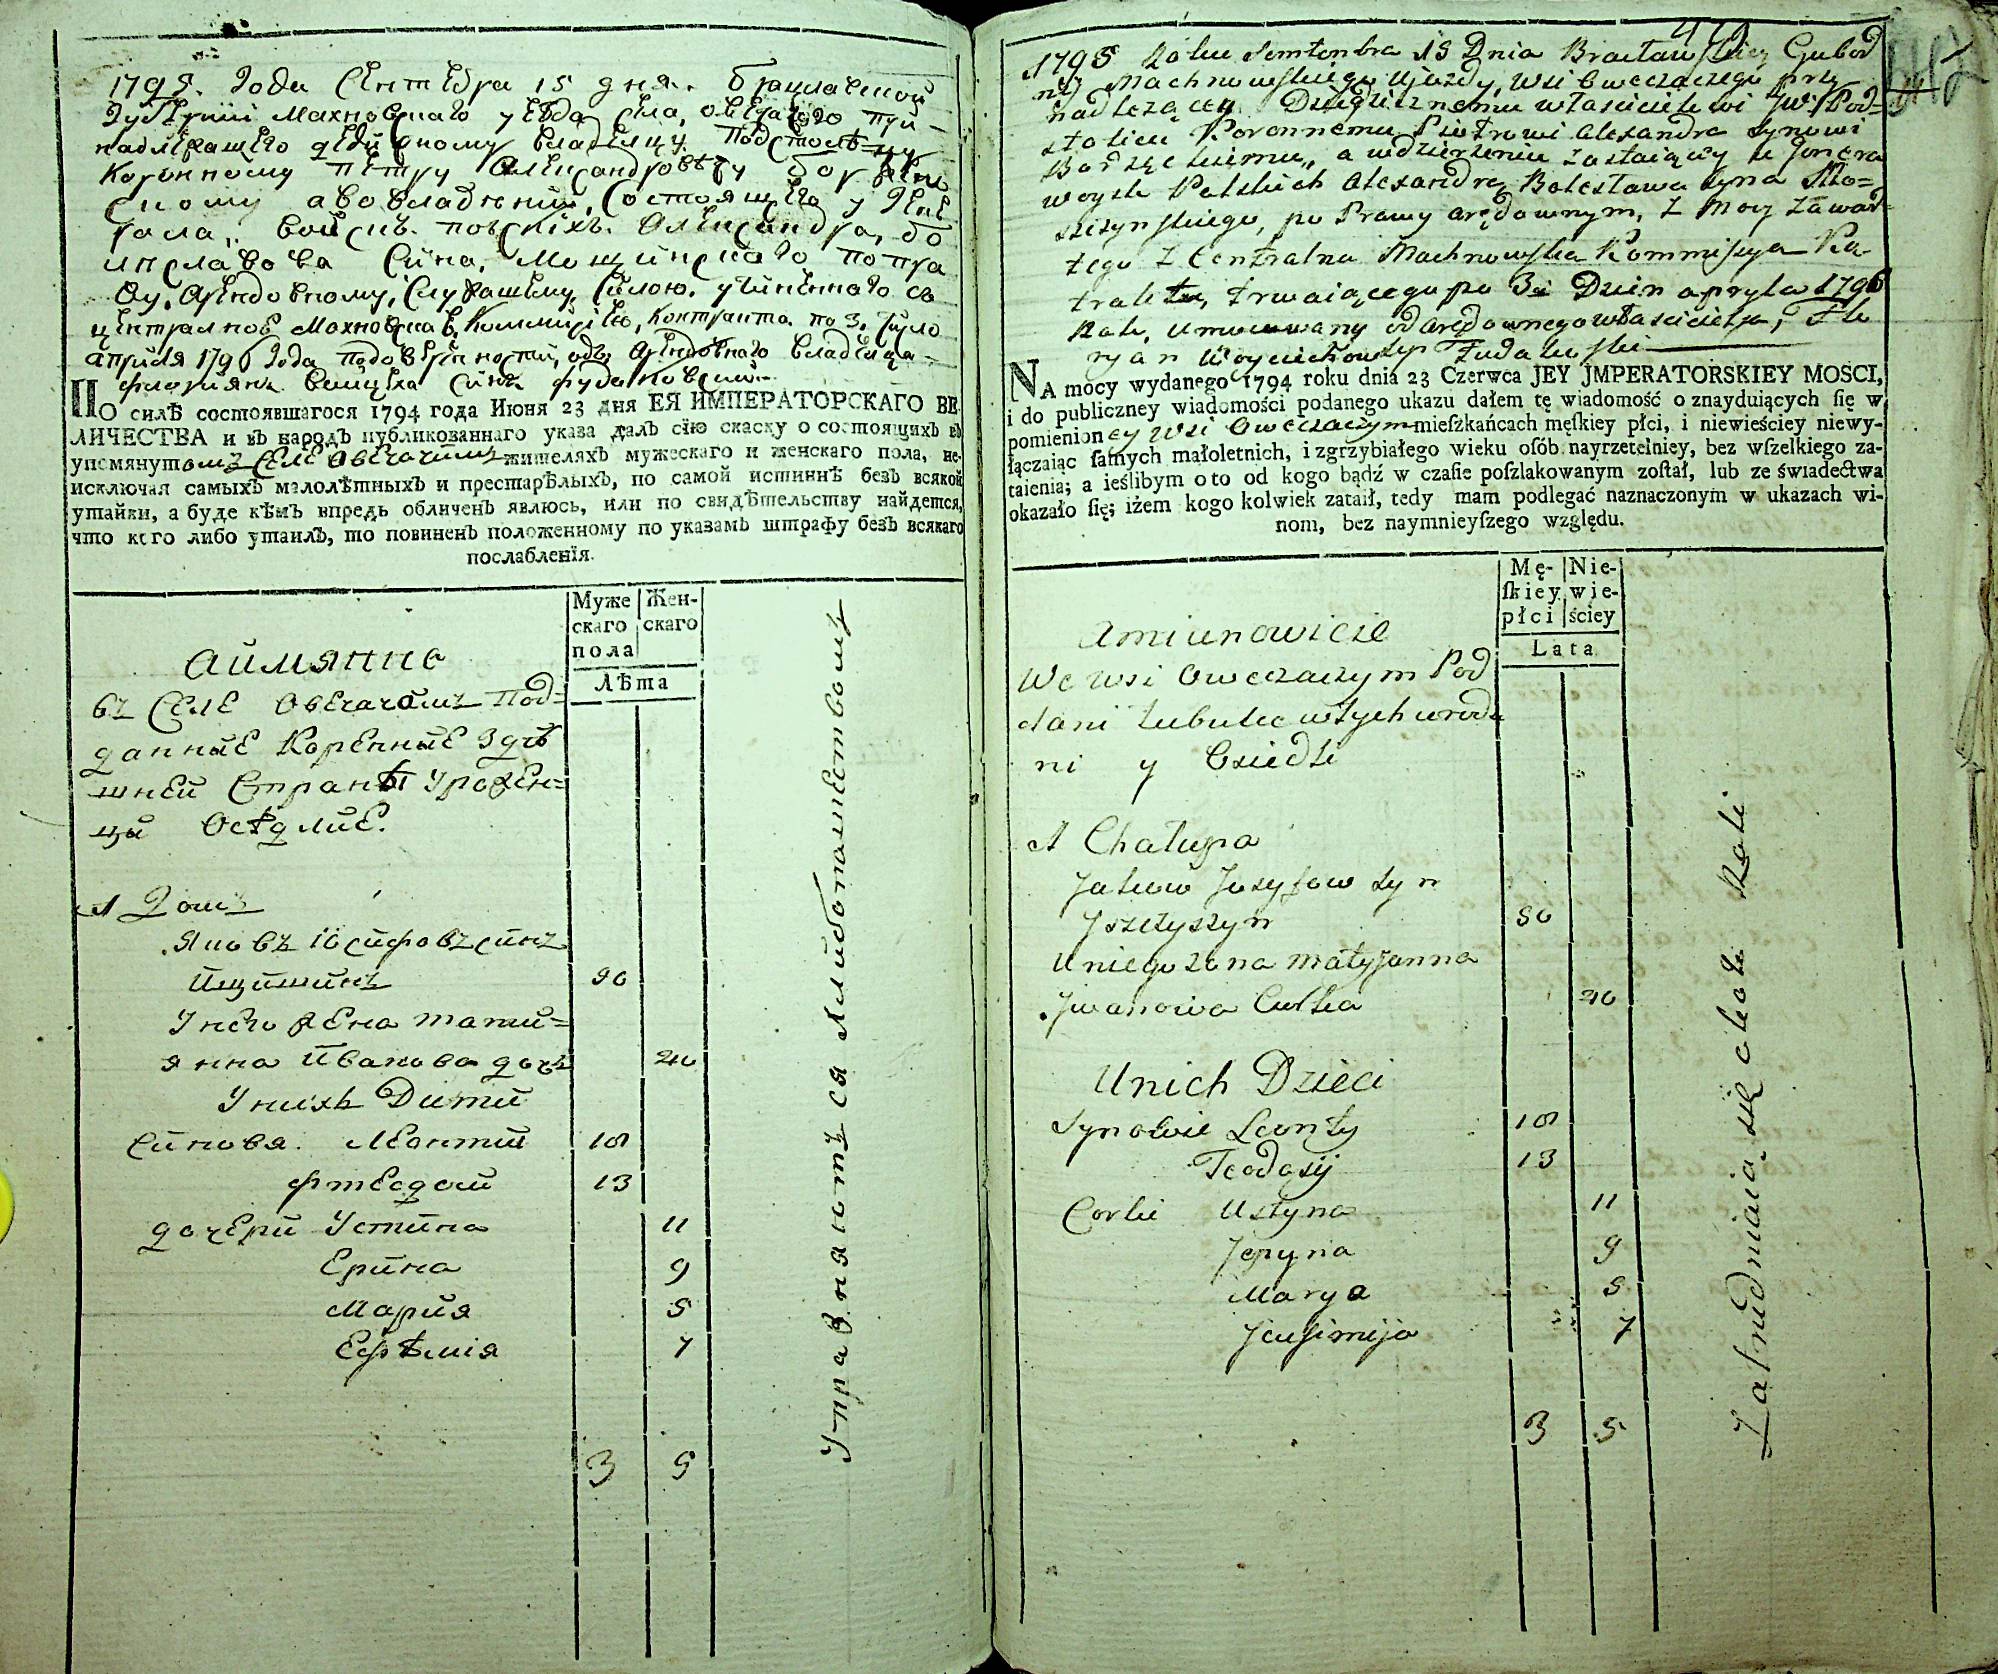 1795. Года Сентебра 15 дня. брацлавской
Губернии Махновскаго уезда села, овечачого при-
надлежащего дедичному владелцу Подстолѣму
Коронному Петру Александровичу
скому а во владении, состоящего у Гене
рала, войскъ. полскихъ. Александра, бо
лиславова Сина, Мощинскаго по пра
ву, Арендовному, силою, учиненнаго со
централною Махновскою Коммисиею, Контракта. по 3. число
априля 1796 Года одъ Арендовнаго владелца
флориянъ синъ
ПО силѣ состоявшагося 1794 года Июня 23 дня ЕЯ ИМПЕРАТОРСКАГО ВЕ-
ЛИЧЕСТВА и въ народъ публикованнаго указа далъ сїю скаску о состоящихъ въ
упомянутомъ Селе Овечачимъ жителяхъ мужескаго и женскаго пола, не-
исключая самыхъ малолѣтныхъ и престарѣлыхъ, по самой истиннѣ безъ всякой
утайки, а буде кѣмъ впредь обличенъ явлюсь, или по свидѣтельству найдется,
что кого либо утаилъ, то повиненъ положенному по указамъ штрафу безъ всякаго
послабленїя.
Муже Жен-
скаго скаго
пола
Лѣта
Аймянно
въ Селе Овечачомъ Под-
данние Коренние Здѣ
шней Страны Урожен-
ци Осѣдлие.
1 Домъ
Яковъ Iосифовъ синъ
Ищишинъ 50
У него жена татий-
янна Иванова дочь 40
У нихъ Дити
Синовя. Леонтий 18
фтеодосий 13
дочери Устина 11
Ерина 9
Мария 5
Ефѣмия 7
3 5
Управняются хлиботаместволиъ
1795 Roku Semtenbra 15 Dnia Bracławskiey Gubor
nij Machnowskiego Ujazdy, wsi Owczaczego przy
nadlezącey Dziedzicznemu właścicielowi JW: Pod-
stolieu Koronnemu Piotrowi Alexandra Synowi
a w dzierżeniu zostaiący u Jenera
woysk Polskich Alexandra Bolesława Syna Mo-
szczynskiego, po Prawu arędownym, z mocy zawar-
tego z Centralna Machnowska Kommiszya Ko-
traktu, trwaiącego po 3i Dzien apryla 1796
Roku, umocowany od arędownego właściciela, Flo
ryan Woyciechow syn Fudakowski
NA mocy wydanego 1794 roku dnia 23 Czerwca JEY JMPERATORSKIEY MOSCI,
i do publiczney wiadomości podanego ukazu dałem tę wiadomość o znayduiących ſię w
pomienioney wsi Owczaczym mieſzkańcach męſkiey płci, i niewieściey niewy-
łączaiąc ſamych małoletnich, i zgrzybiałego wieku oſób nayrzetelniey, bez wſzelkiego za-
taienia; a ieślibym oto od kogo bądź w czaſie poſzlakowanym zoſtał, lub ze świadectwa
okazało ſię; iżem kogo kolwiek zataił, tedy mam podlegać naznaczonym w ukazach wi-
nom, bez naymnieyſzego względu.
Mę- Nie-
ſkiey wie-
płci ściey
Lata
Amiunowicie
We wsi Owczaczym Pod
dani tubulcewtych urodz
ni y Osiedli
1 Chałupa
Jakow Jozyfow syn
Jszczyszyn 50
U niego zona Matyjanna
Jwanowa Curka 40
U nich Dzieci
Synowie Leonty 18
Teodosij 13
Corki Ustyna 11
Jeryna 9
Marya 5
Jeufimija 7
3 5
Zatrudniaią się około Roli